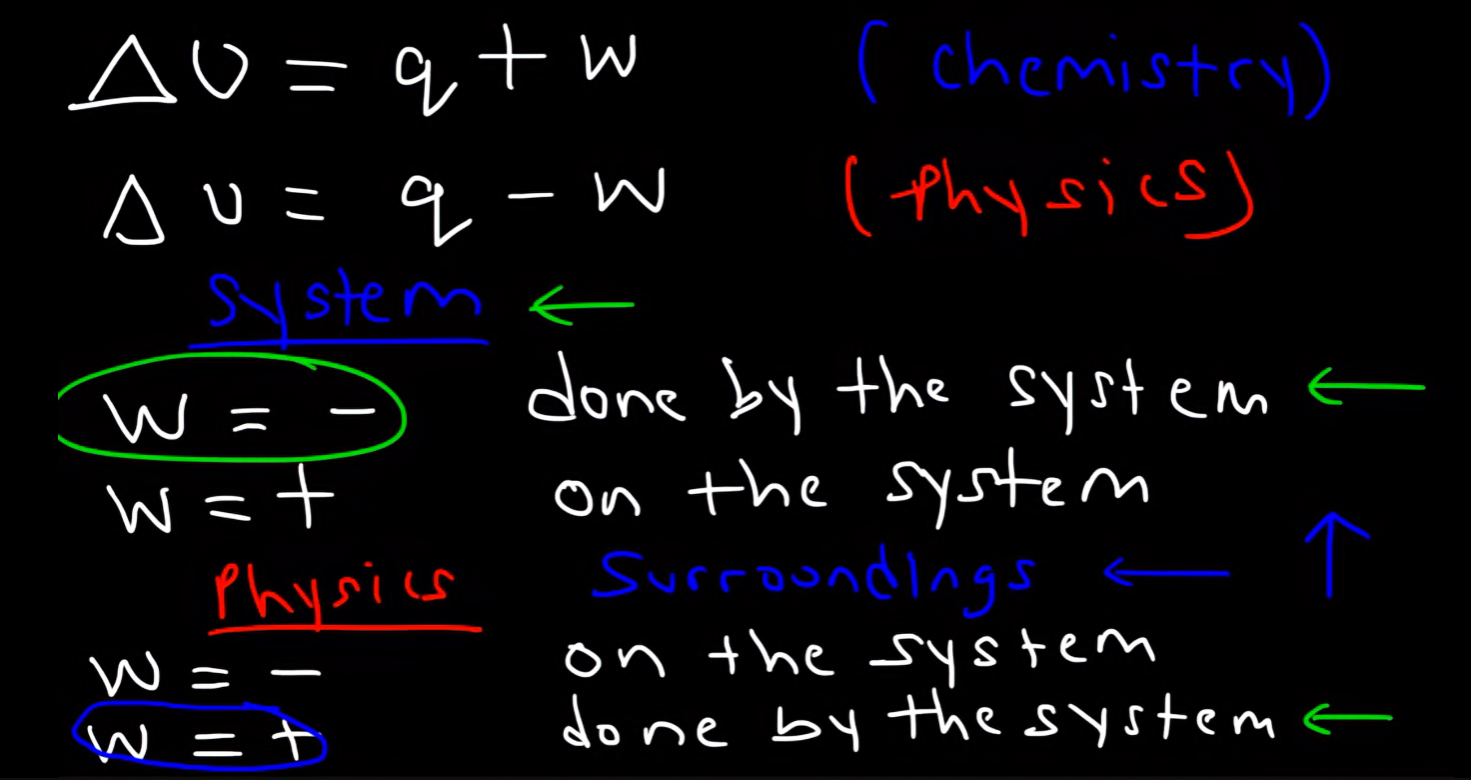 ΔU = q + w (chemistry)
ΔU = q - w (physics)
system ←
w = - done by the system ←
w = + on the system
Physics Surroundings ← ↑
w = - on the system
w = + done by the system ←